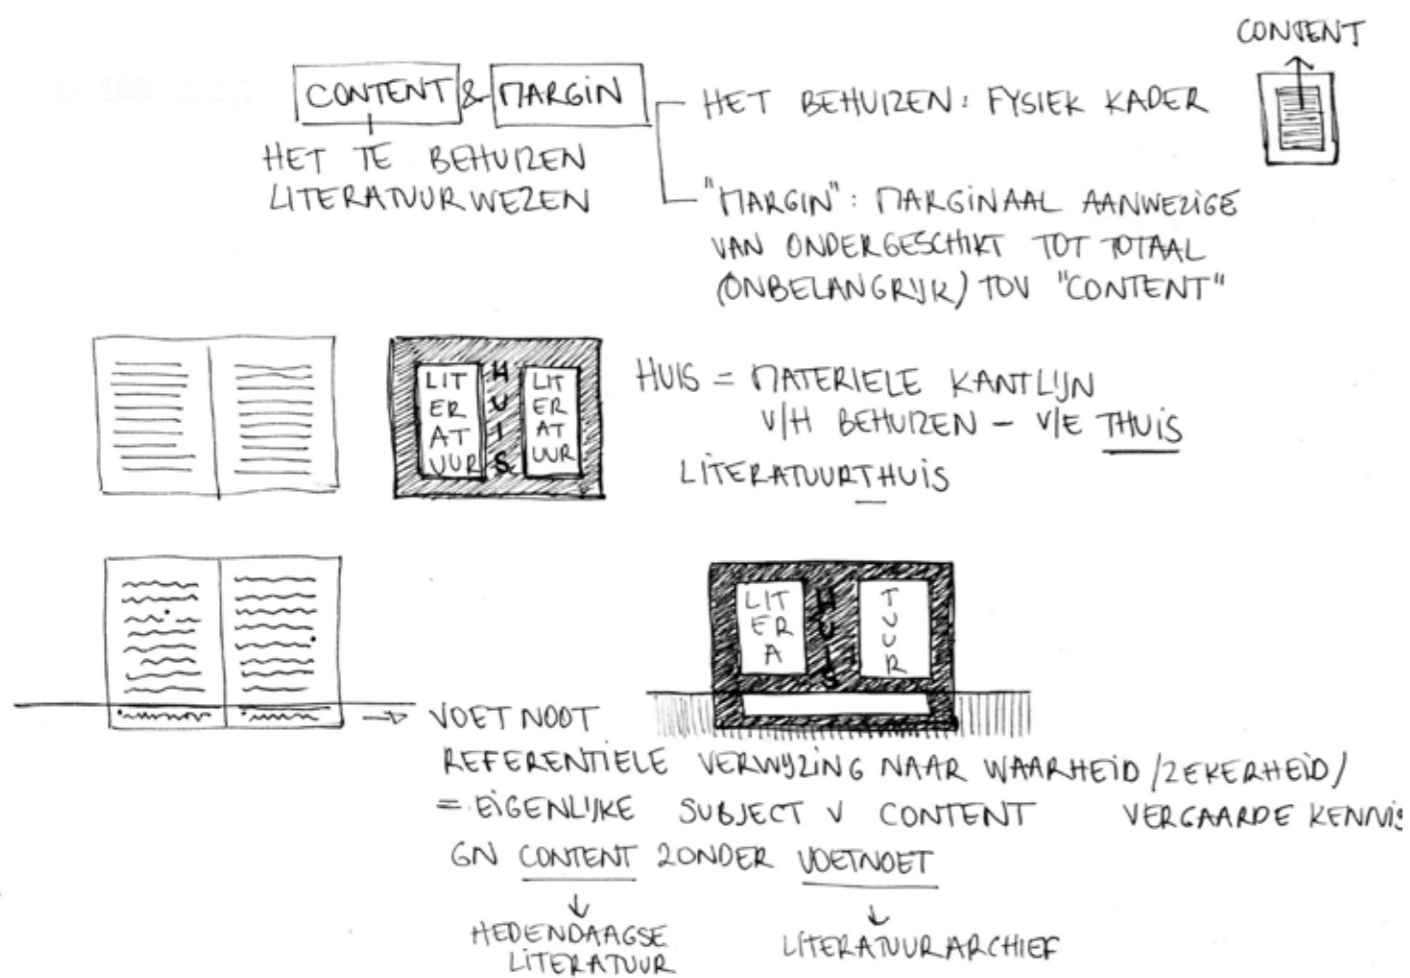 CONTENT
CONTENT & MARGIN
HET BEHUIZEN: FYSIEK KADER
HET TE BEHUIZEN
LITERATUURWEZEN
"MARGIN": MARGINAAL AANWEZIGE
VAN ONDERGESCHIKT TOT TOTAAL
(ONBELANGRIJK) TOV "CONTENT"
LIT
ER
AT
UUR
HUIS
LIT
ER
AT
UUR
HUIS = MATERIELE KANTLIJN
V/H BEHUIZEN – V/E THUIS
LITERATUURTHUIS
LIT
ER
A
HUIS
T
U
U
R
VOETNOOT
REFERENTIELE VERWIJZING NAAR WAARHEID/ZEKERHEID/
= EIGENLIJKE SUBJECT V CONTENT VERGAARDE KENNIS
GN CONTENT ZONDER VOETNOET
HEDENDAAGSE
LITERATUUR
LITERATUURARCHIEF